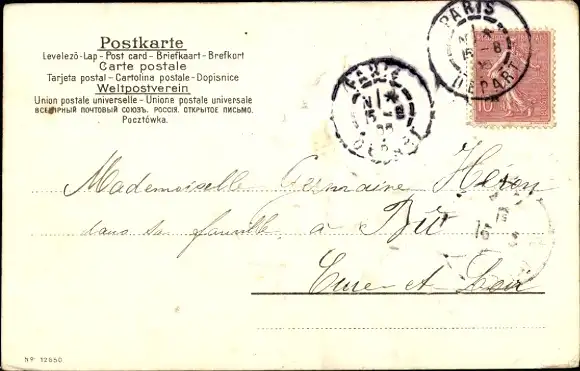 Postkarte
Levelező-Lap - Post card - Briefkaart - Brefkort
Carte postale
Tarjeta postal - Cartolina postale - Dopisnice
Weltpostverein
Union postale universelle - Unione postale universale
ВСЕМІРНЫЙ ПОЧТОВЫЙ СОЮЗЪ. РОССІЯ. ОТКРЫТОЕ ПИСЬМО.
Pocztówka.
PARIS
DEPART
10
PARIS
DEPART
Mademoiselle Germaine Héron
dans sa famille, à Bû
Eure et Loir
Nº 12650